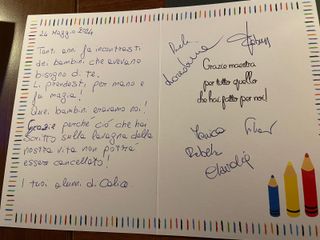 24 Maggio 2024
Tanti anni fa incontrasti
dei bambini che avevano
bisogno di te.
Li prendesti per mano e
fu magia!
Quei bambini eravamo noi!
Grazie perché ciò che hai
scritto sulla lavagna della
nostra vita non potrà
essere cancellato!
I tuoi alunni di
Loredana
Grazie maestra
per tutto quello
che hai fatto per noi!
Claudia